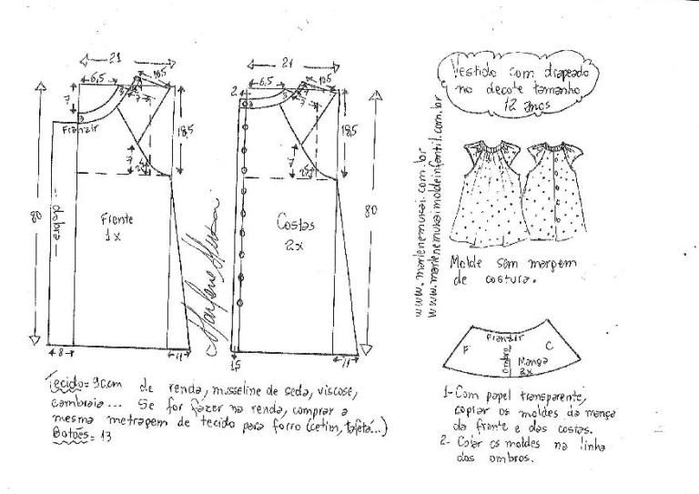 21
6,5
10,5
7
3
Franzir
18,5
7
80
dobra
Frente
1x
8
11
21
2
6,5
10,5
3
18,5
7
80
Costas
2x
1,5
11
Marlene Mukai
Vestido com drapeado
no decote tamanho
12 anos
www.marlenemukai.com.br
www.marlenemukaimoldeinfantil.com.br
Molde sem margem
de costura.
Franzir
F
Ombro
C
Manga
2x
Tecido= 90cm de renda, musseline de seda, viscose,
cambraia... Se for fazer na renda, comprar a
mesma metragem de tecido para forro (cetim, tafetá...)
Botões= 13
1-Com papel transparente,
copiar os moldes da manga
da frente e das costas.
2- Colar os moldes na linha
dos ombros.